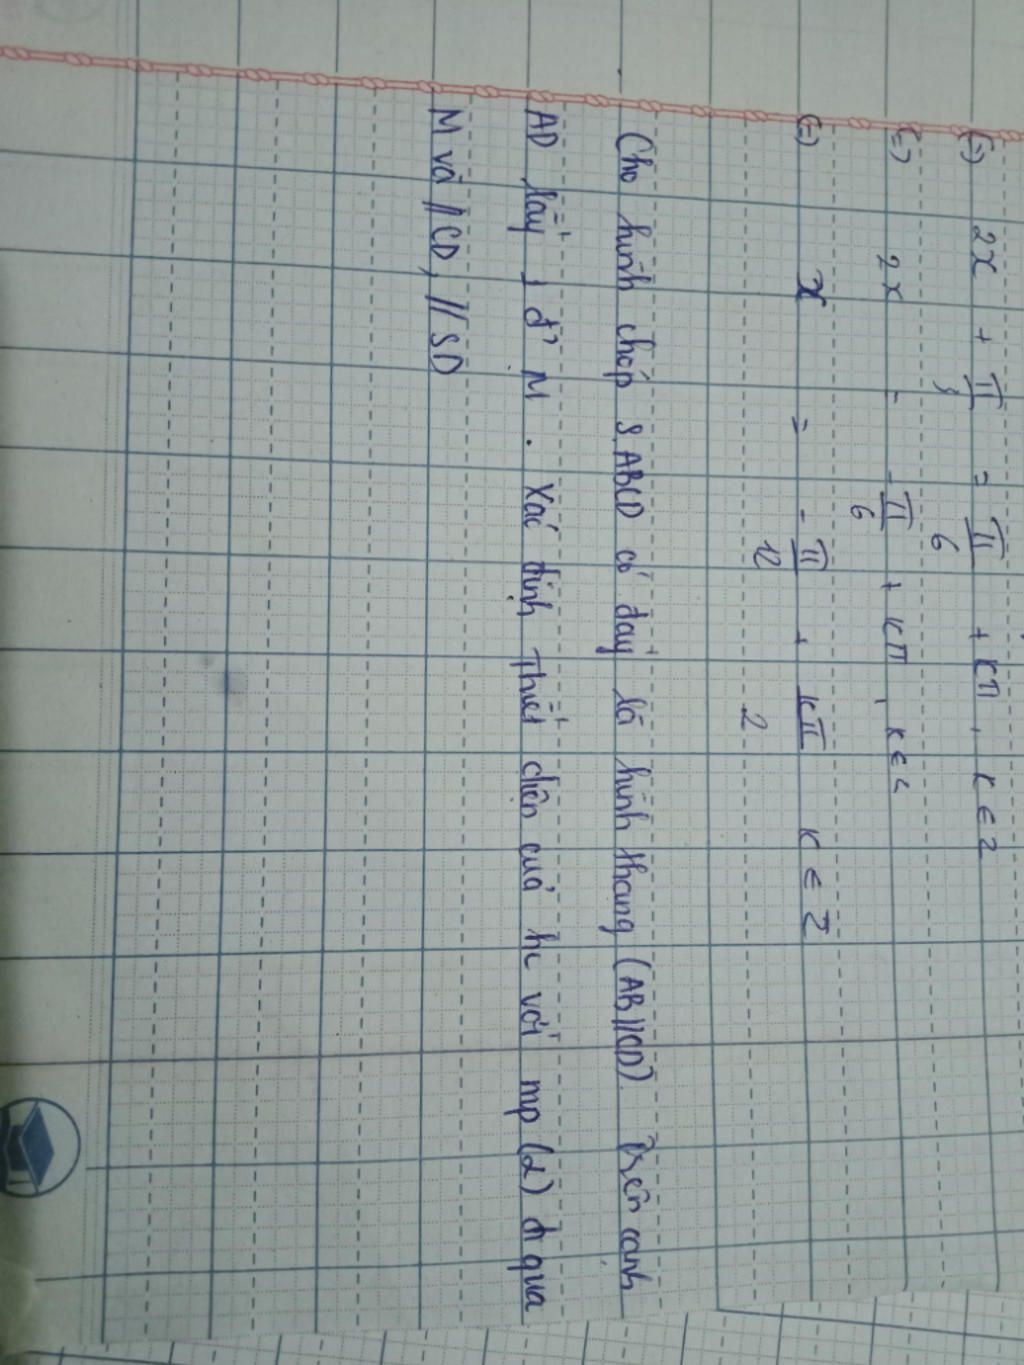 (=) 2x + π/3 = π/6 + kπ, k ∈ Z
(=) 2x = -π/6 + kπ, k ∈ Z
(=) x = -π/12 + kπ/2 k ∈ Z
Cho hình chóp S.ABCD có đáy là hình thang (AB//CD) Trên cạnh
AD lấy 1 đ' M. Xác định Thiết diện của hc với mp (α) đi qua
M và //CD, //SD